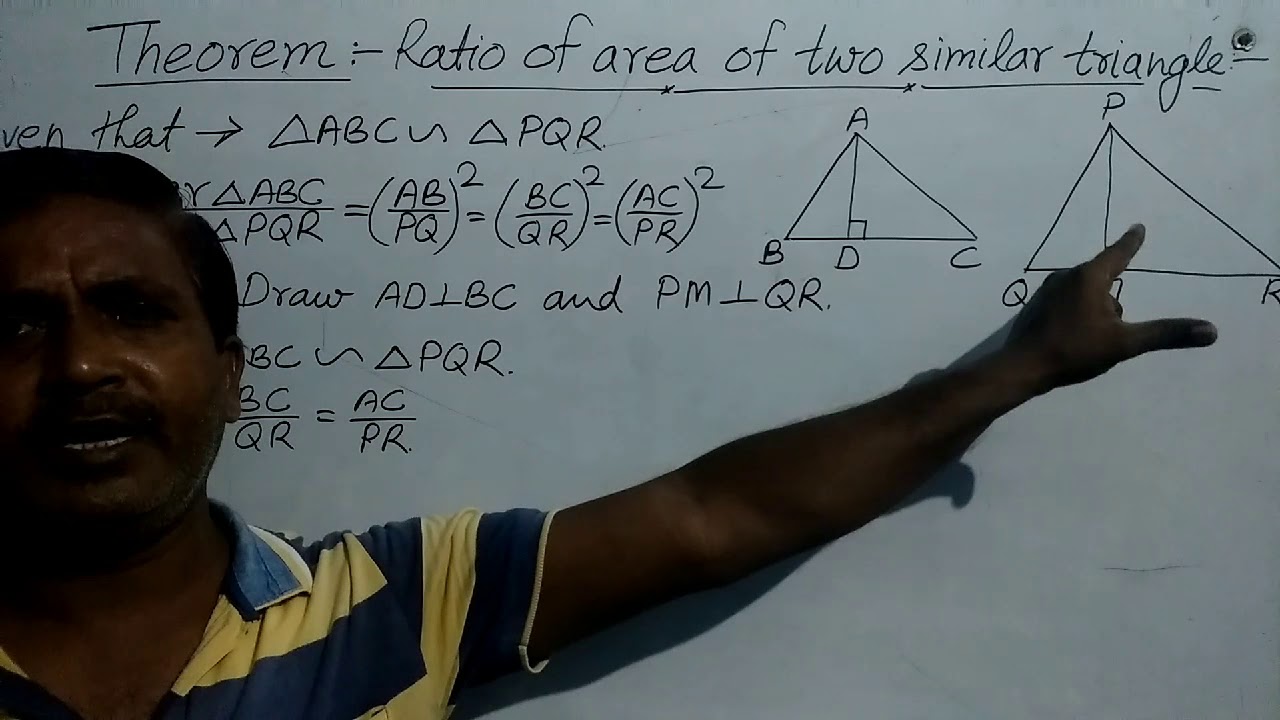 Theorem:- Ratio of area of two similar triangle:-
that → △ABC ∽ △PQR.
△ABC/△PQR = (AB/PQ)² = (BC/QR)² = (AC/PR)²
Draw AD⊥BC and PM⊥QR.
BC ∽ △PQR.
BC/QR = AC/PR.
A
B D C
P
Q R